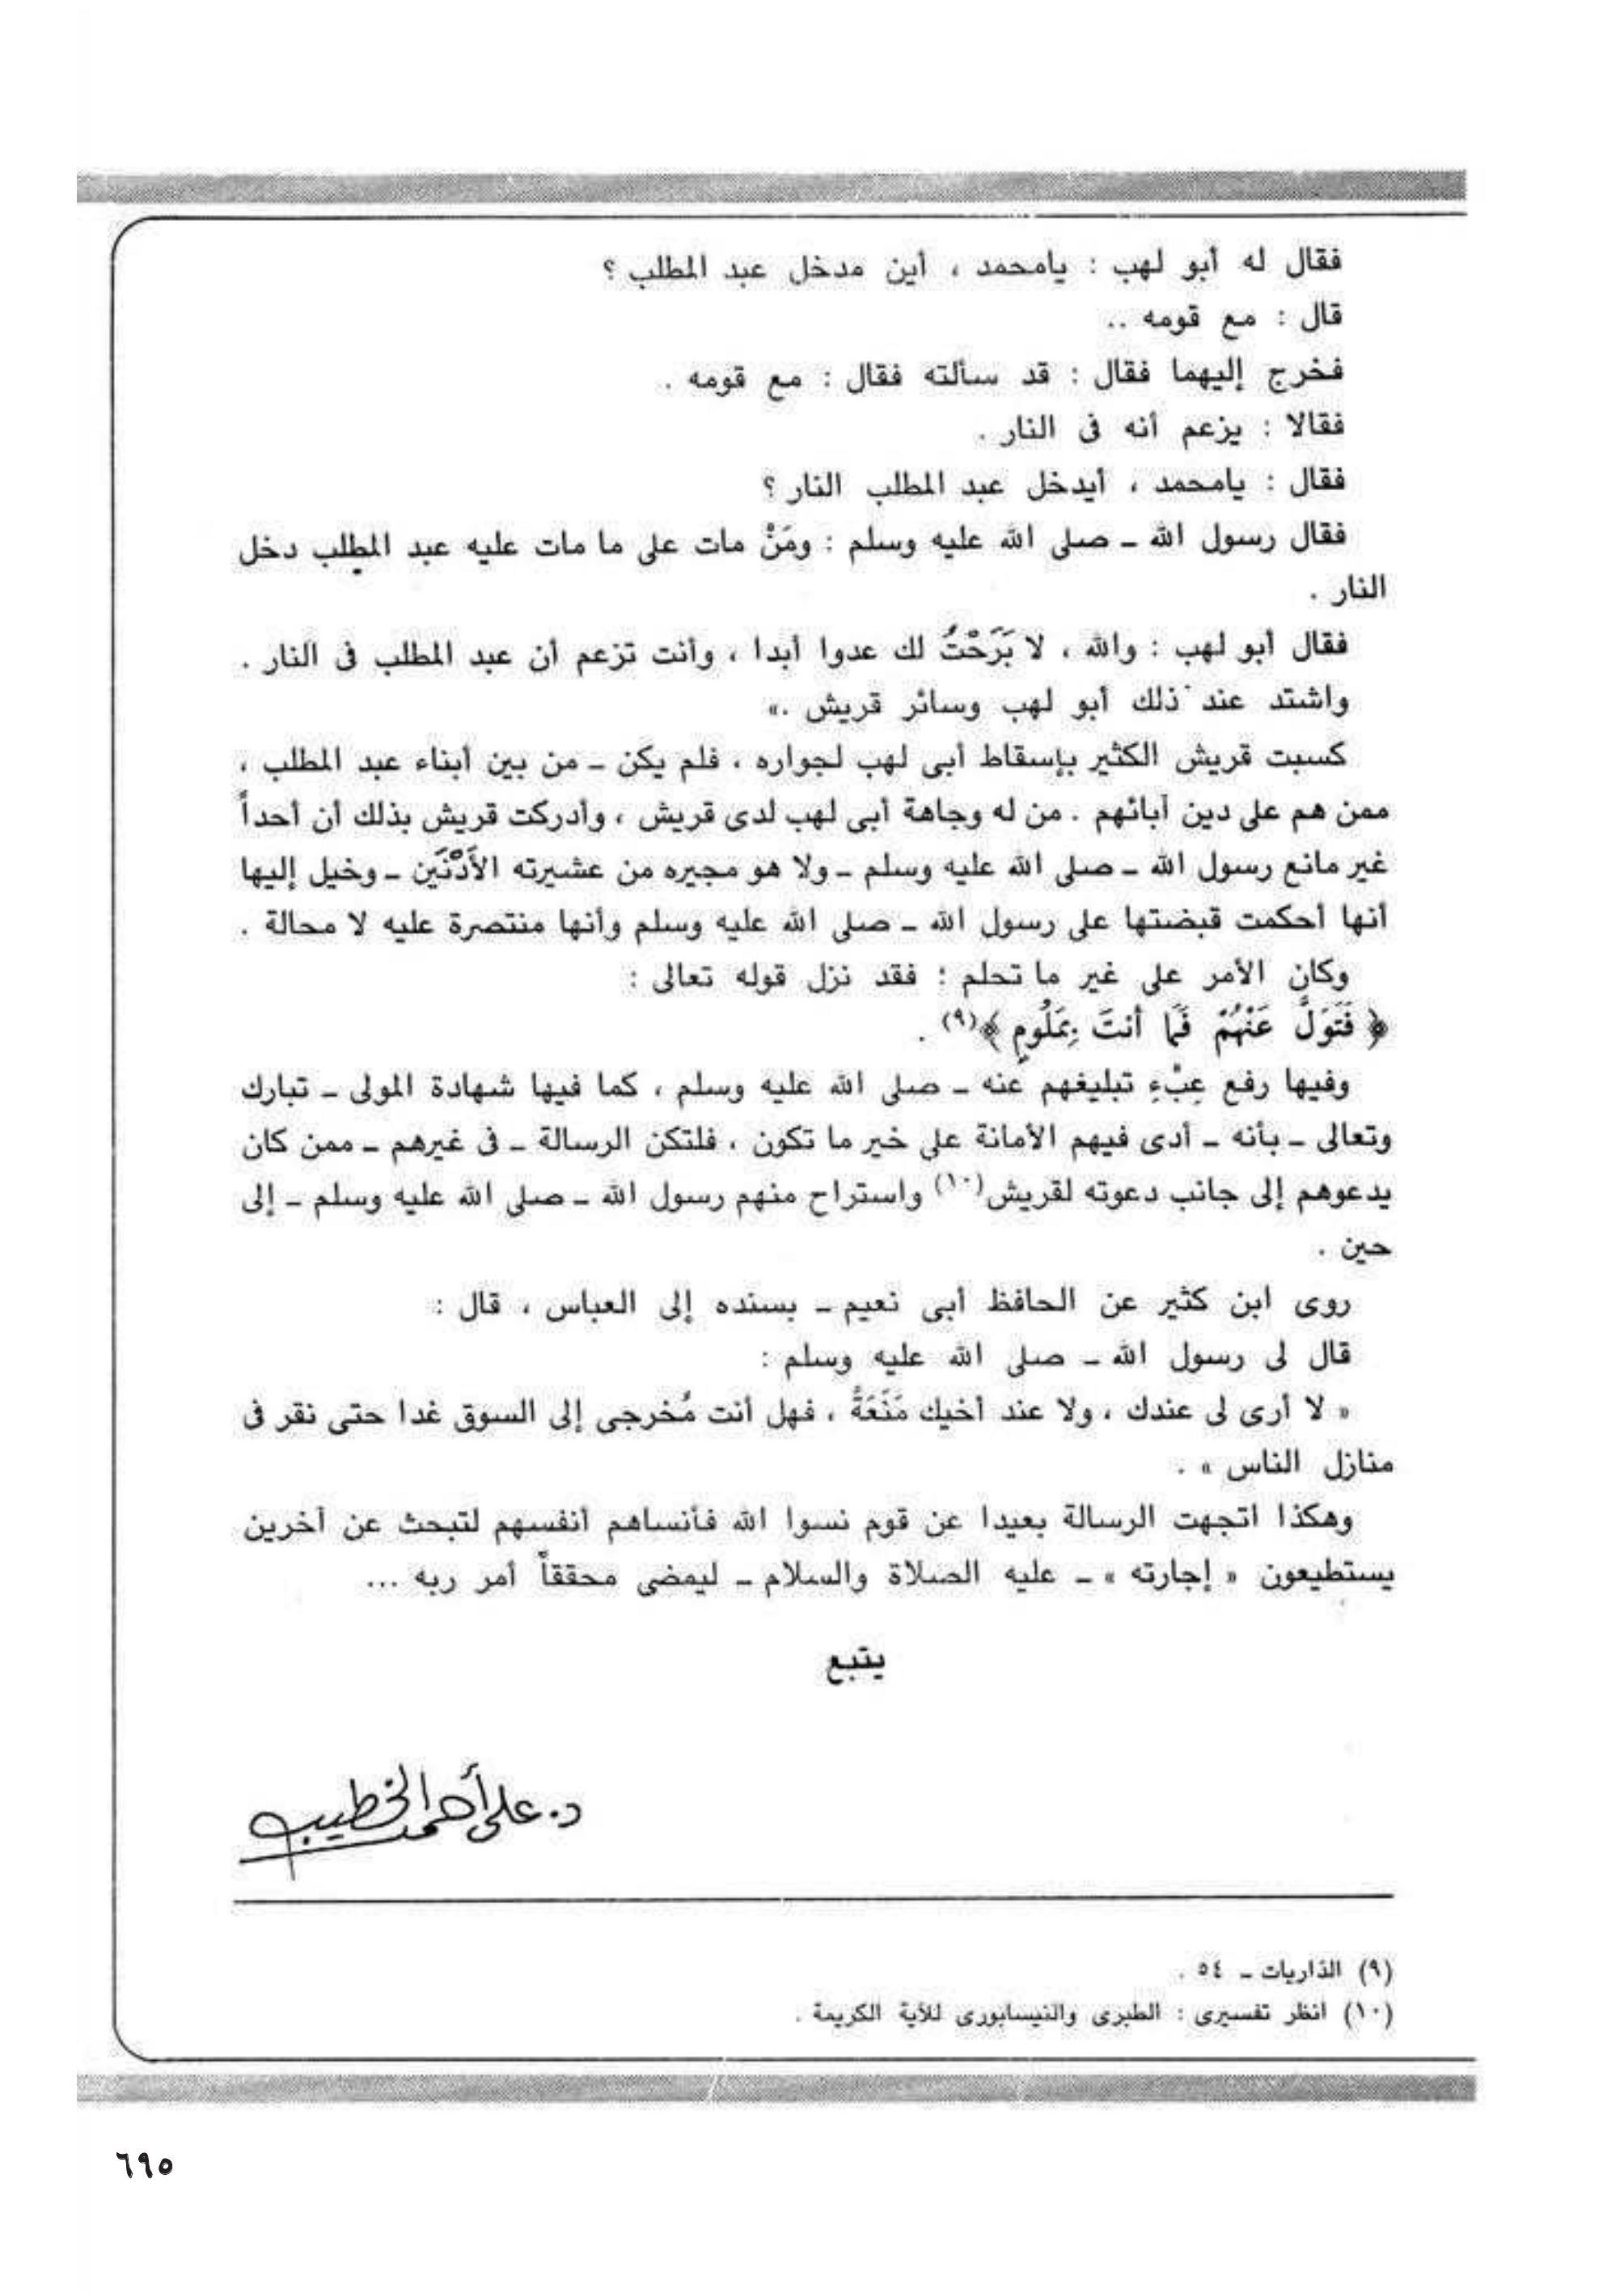 فقال له أبو لهب : يامحمد ، أين مدخل عبد المطلب ؟
قال : مع قومه ..
فخرج إليهما فقال : قد سألته فقال : مع قومه .
فقالا : يزعم أنه فى النار .
فقال : يامحمد ، أيدخل عبد المطلب النار ؟
فقال رسول الله ـ صلى الله عليه وسلم : ومَنْ مات على ما مات عليه عبد المطلب دخل
النار .
فقال أبو لهب : والله ، لا بَرَحْتُ لك عدوا أبدا ، وأنت تزعم أن عبد المطلب فى النار .
واشتد عند ذلك أبو لهب وسائر قريش .»
كسبت قريش الكثير بإسقاط أبى لهب لجواره ، فلم يكن ـ من بين أبناء عبد المطلب ،
ممن هم على دين آبائهم . من له وجاهة أبى لهب لدى قريش ، وأدركت قريش بذلك أن أحداً
غير مانع رسول الله ـ صلى الله عليه وسلم ـ ولا هو مجيره من عشيرته الأَدْنَين ـ وخيل إليها
أنها أحكمت قبضتها على رسول الله ـ صلى الله عليه وسلم وأنها منتصرة عليه لا محالة .
وكان الأمر على غير ما تحلم ؛ فقد نزل قوله تعالى :
﴿ فَتَوَلَّ عَنْهُمْ فَمَا أَنتَ بِمَلُومٍ ﴾(٩) .
وفيها رفع عِبْءِ تبليغهم عنه ـ صلى الله عليه وسلم ، كما فيها شهادة المولى ـ تبارك
وتعالى ـ بأنه ـ أدى فيهم الأمانة على خير ما تكون ، فلتكن الرسالة ـ فى غيرهم ـ ممن كان
يدعوهم إلى جانب دعوته لقريش(١٠) واستراح منهم رسول الله ـ صلى الله عليه وسلم ـ إلى
حين .
روى ابن كثير عن الحافظ أبى نعيم ـ بسنده إلى العباس ، قال :
قال لى رسول الله ـ صلى الله عليه وسلم :
« لا أرى لى عندك ، ولا عند أخيك مَنَعَةً ، فهل أنت مُخرجى إلى السوق غدا حتى نقر فى
منازل الناس » .
وهكذا اتجهت الرسالة بعيدا عن قوم نسوا الله فأنساهم أنفسهم لتبحث عن آخرين
يستطيعون « إجارته » ـ عليه الصلاة والسلام ـ ليمضى محققاً أمر ربه ...
يتبع
د. على أحمد الخطيب
(٩) الذاريات ـ ٥٤ .
(١٠) انظر تفسيرى : الطبرى والنيسابورى للآية الكريمة .
٦٩٥